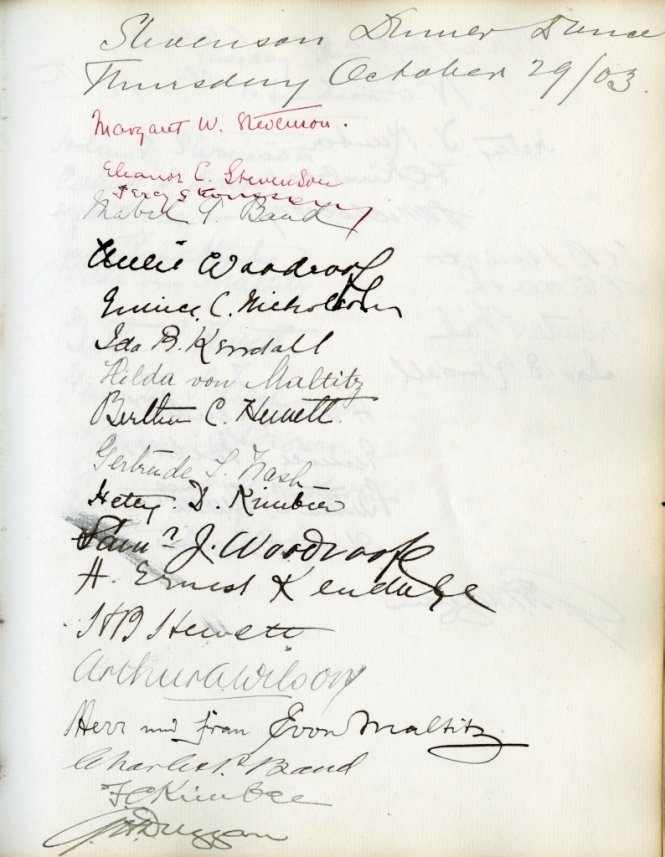 Stevenson Dinner Dance
Thursday October 29/03.
Margaret W. Stevenson.
Eleanor C. Stevenson
Mabel G. Band
Woodroofe
Eunice C. Nicholson
Ida B. Kendall
Hilda von Maltitz
Bertha C. Hewett.
Gertrude L. Nash
Hetey. D. Kimbee
Sam'l J. Woodroofe
H. Ernest Kendall
HB Hewett
Arthur A Wilson
Herr und Frau E von Maltitz
Charles P. Band
F C Kimbee
Duggan